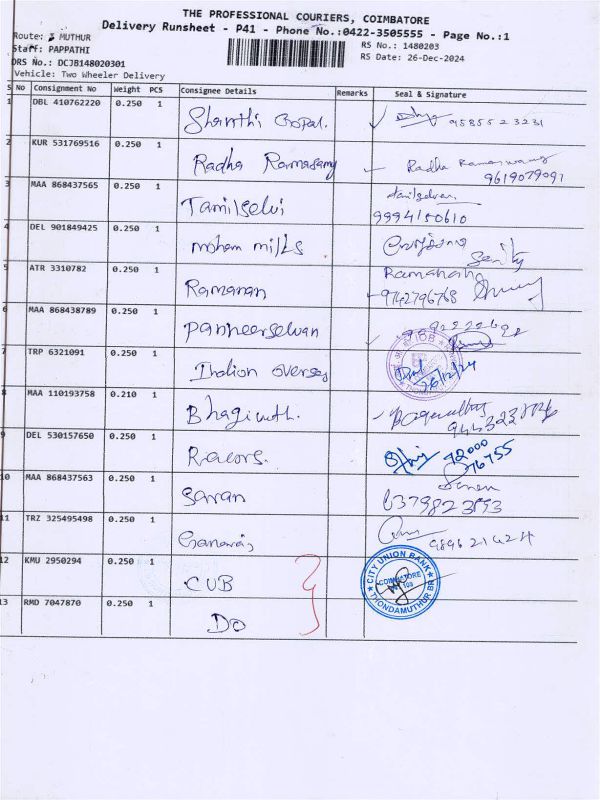 THE PROFESSIONAL COURIERS, COIMBATORE
Delivery Runsheet - P41 - Phone No.:0422-3505555 - Page No.:1
Route: MUTHUR
RS No.: 1480203
Staff: PAPPATHI
RS Date: 26-Dec-2024
DRS No.: DCJB148020301
Vehicle: Two Wheeler Delivery
S No Consignment No Weight PCS Consignee Details Remarks Seal & Signature
1 DBL 410762220 0.250 1 Shanthi Gopal. 9585523231
2 KUR 531769516 0.250 1 Radha Ramasamy Radha Ramaswamy
9619079091
3 MAA 868437565 0.250 1 Tamilselvi
9994150610
4 DEL 901849425 0.250 1 moham milks
5 ATR 3310782 0.250 1 Ramanan
9742796768
6 MAA 868438789 0.250 1 Panneerselvan
7 TRP 6321091 0.250 1 Indion overses IOB
26/12/24
8 MAA 110193758 0.210 1 Bhagirath.
9 DEL 530157650 0.250 1 72000
76755
10 MAA 868437563 0.250 1 Saran
6379823593
11 TRZ 325495498 0.250 1
12 KMU 2950294 0.250 1 CUB CITY UNION BANK
COIMBATORE
THONDAMUTHUR BR
13 RMD 7047870 0.250 1 DO